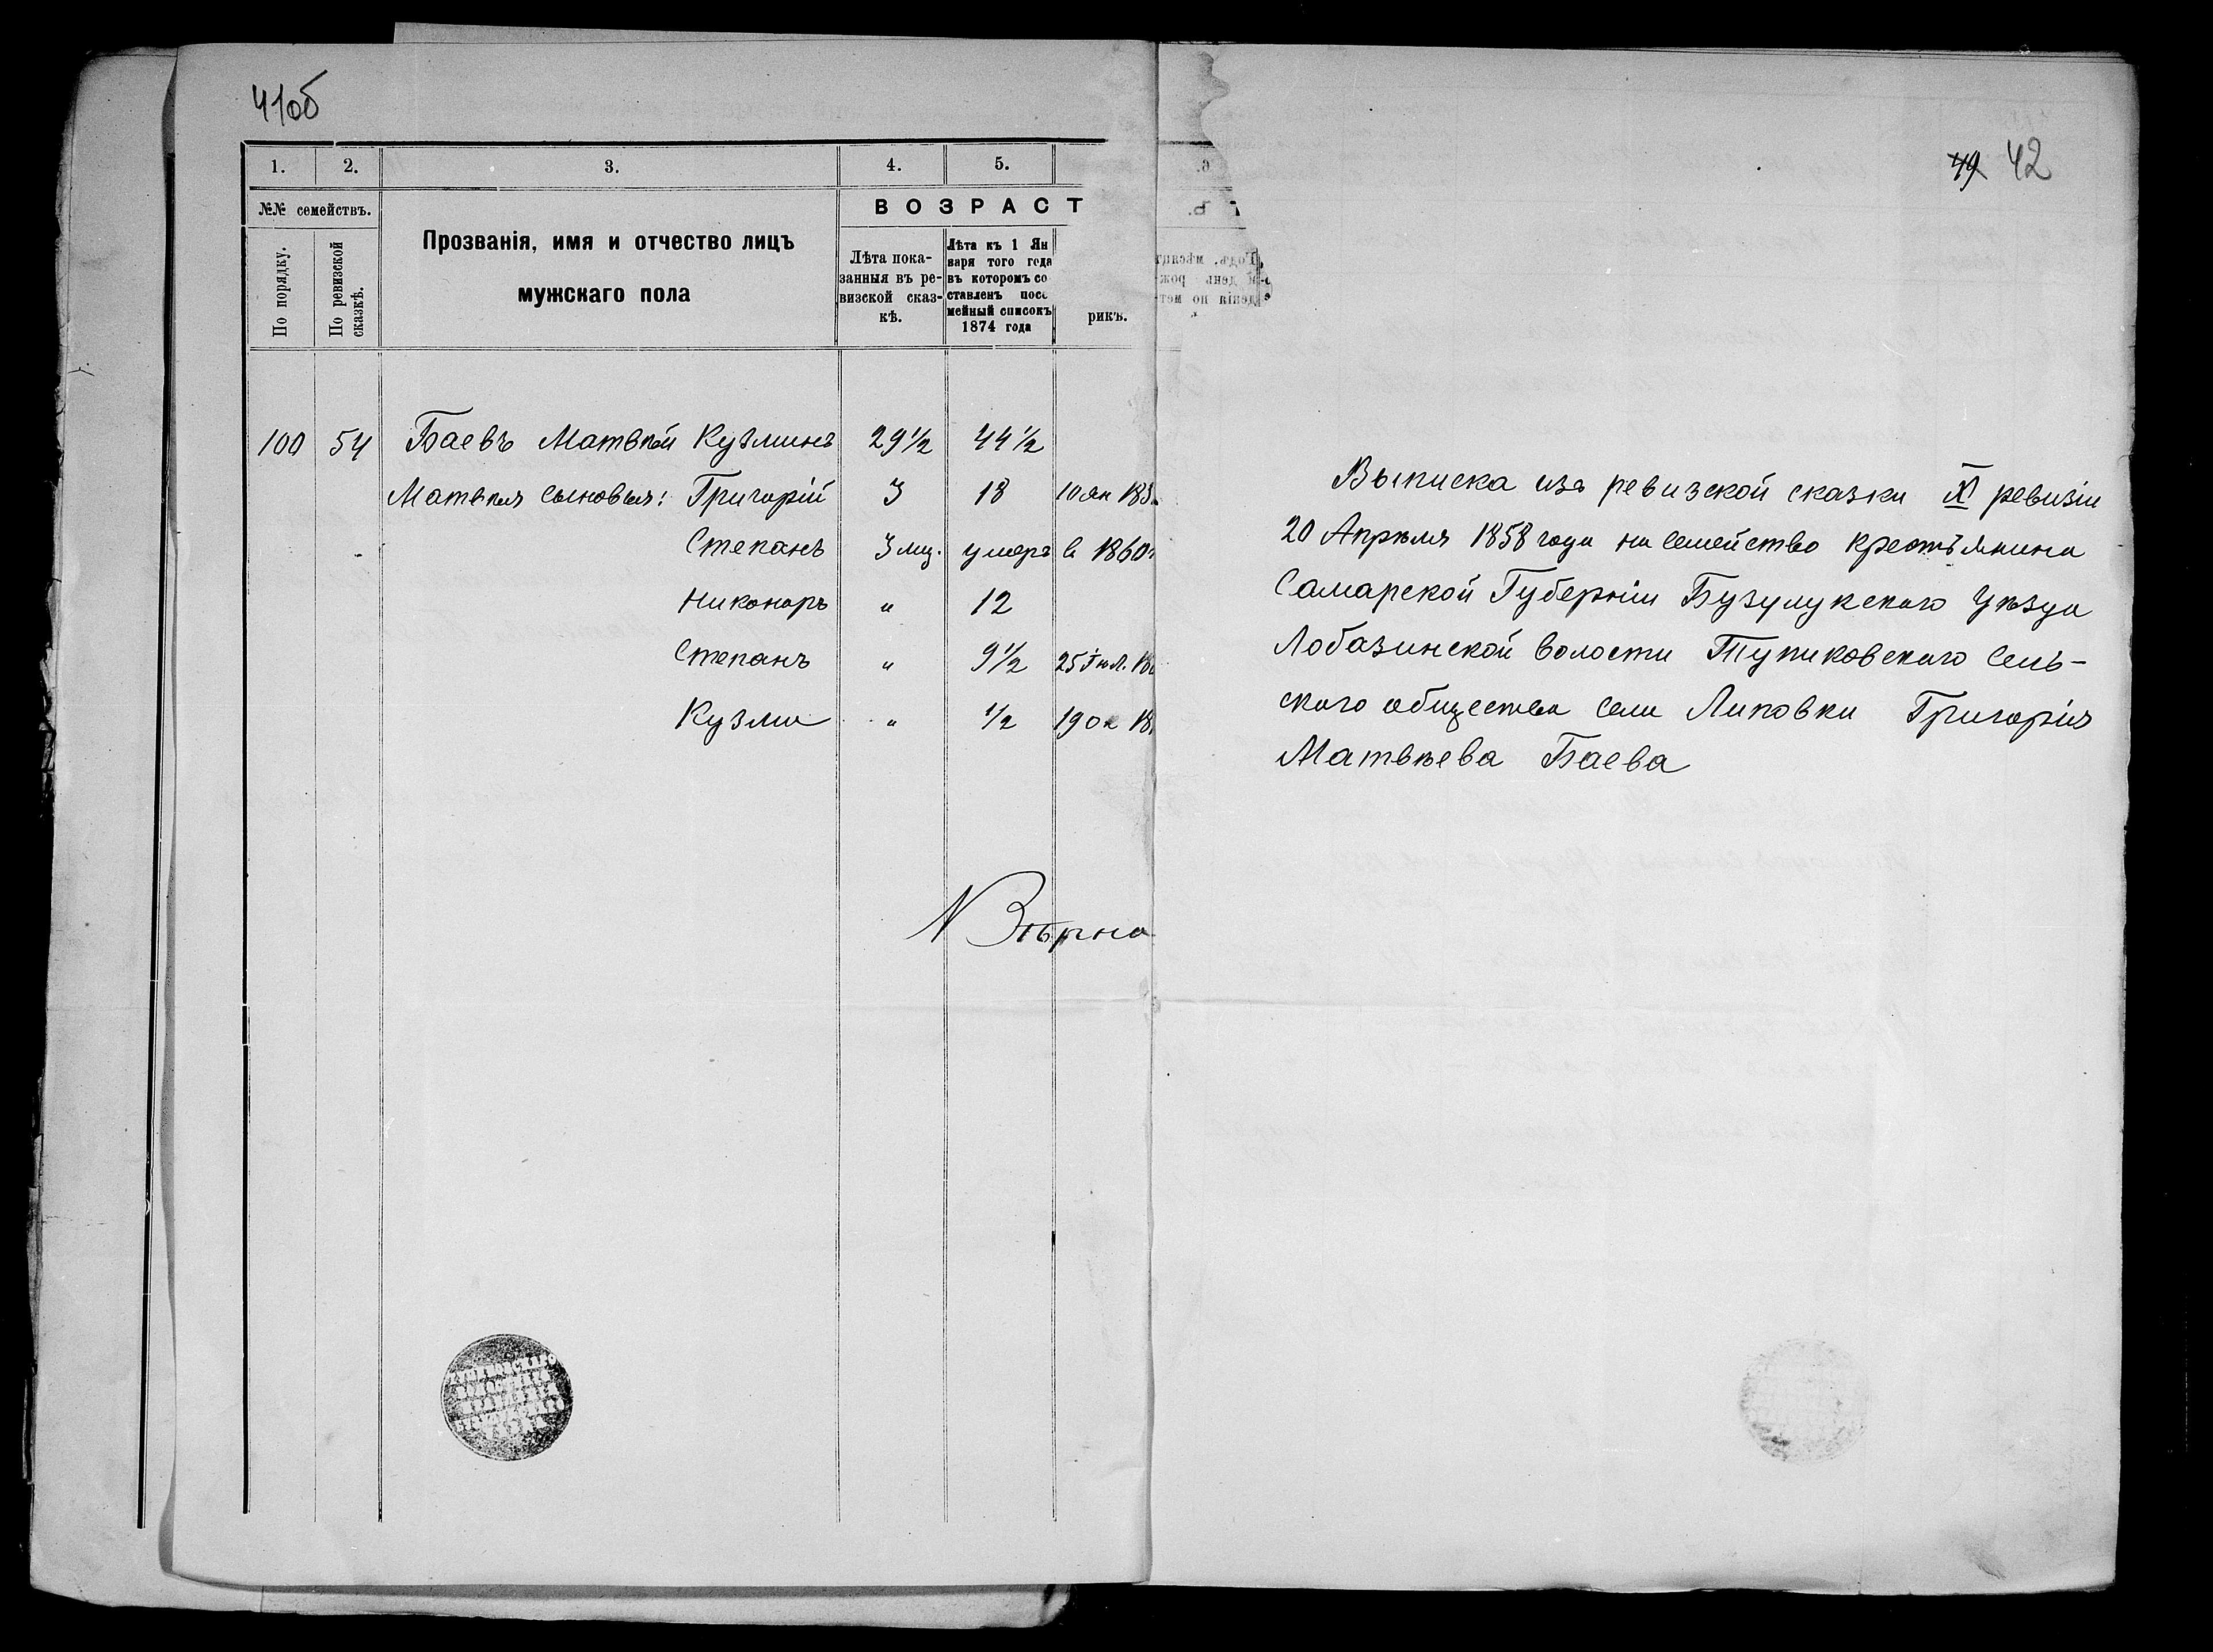 41об
1. 2. 3. 4. 5.
№№ семействъ.
По порядку.
По ревизской сказкѣ.
Прозванія, имя и отчество лицъ
мужскаго пола
ВОЗРАСТ
Лѣта пока-
занныя въ ре-
визской сказ-
кѣ.
Лѣта къ 1 Ян
варя того года
въ которомъ со
ставленъ посе
мейный списокъ
1874 года
рикъ.
100 54 Баевъ Матвѣй Кузминъ 29½ 44½
Матвѣя сыновья: Григорій 3 18 10 ян 185
Степанъ 3 мц. умеръ в 1860г
Никоноръ " 12
Степанъ " 9½ 25 Іюл. 18
Кузма " ½ 19 ок 18
Вѣрно
49 42
Выписка изъ ревизской сказки X ревизіи
20 Апрѣля 1858 года на семейство крестьянина
Самарской Губерніи Бузулукскаго Уѣзда
Лобазинской волости Тупиковскаго Сель-
скаго общества села Липовки Григорія
Матвѣева Баева